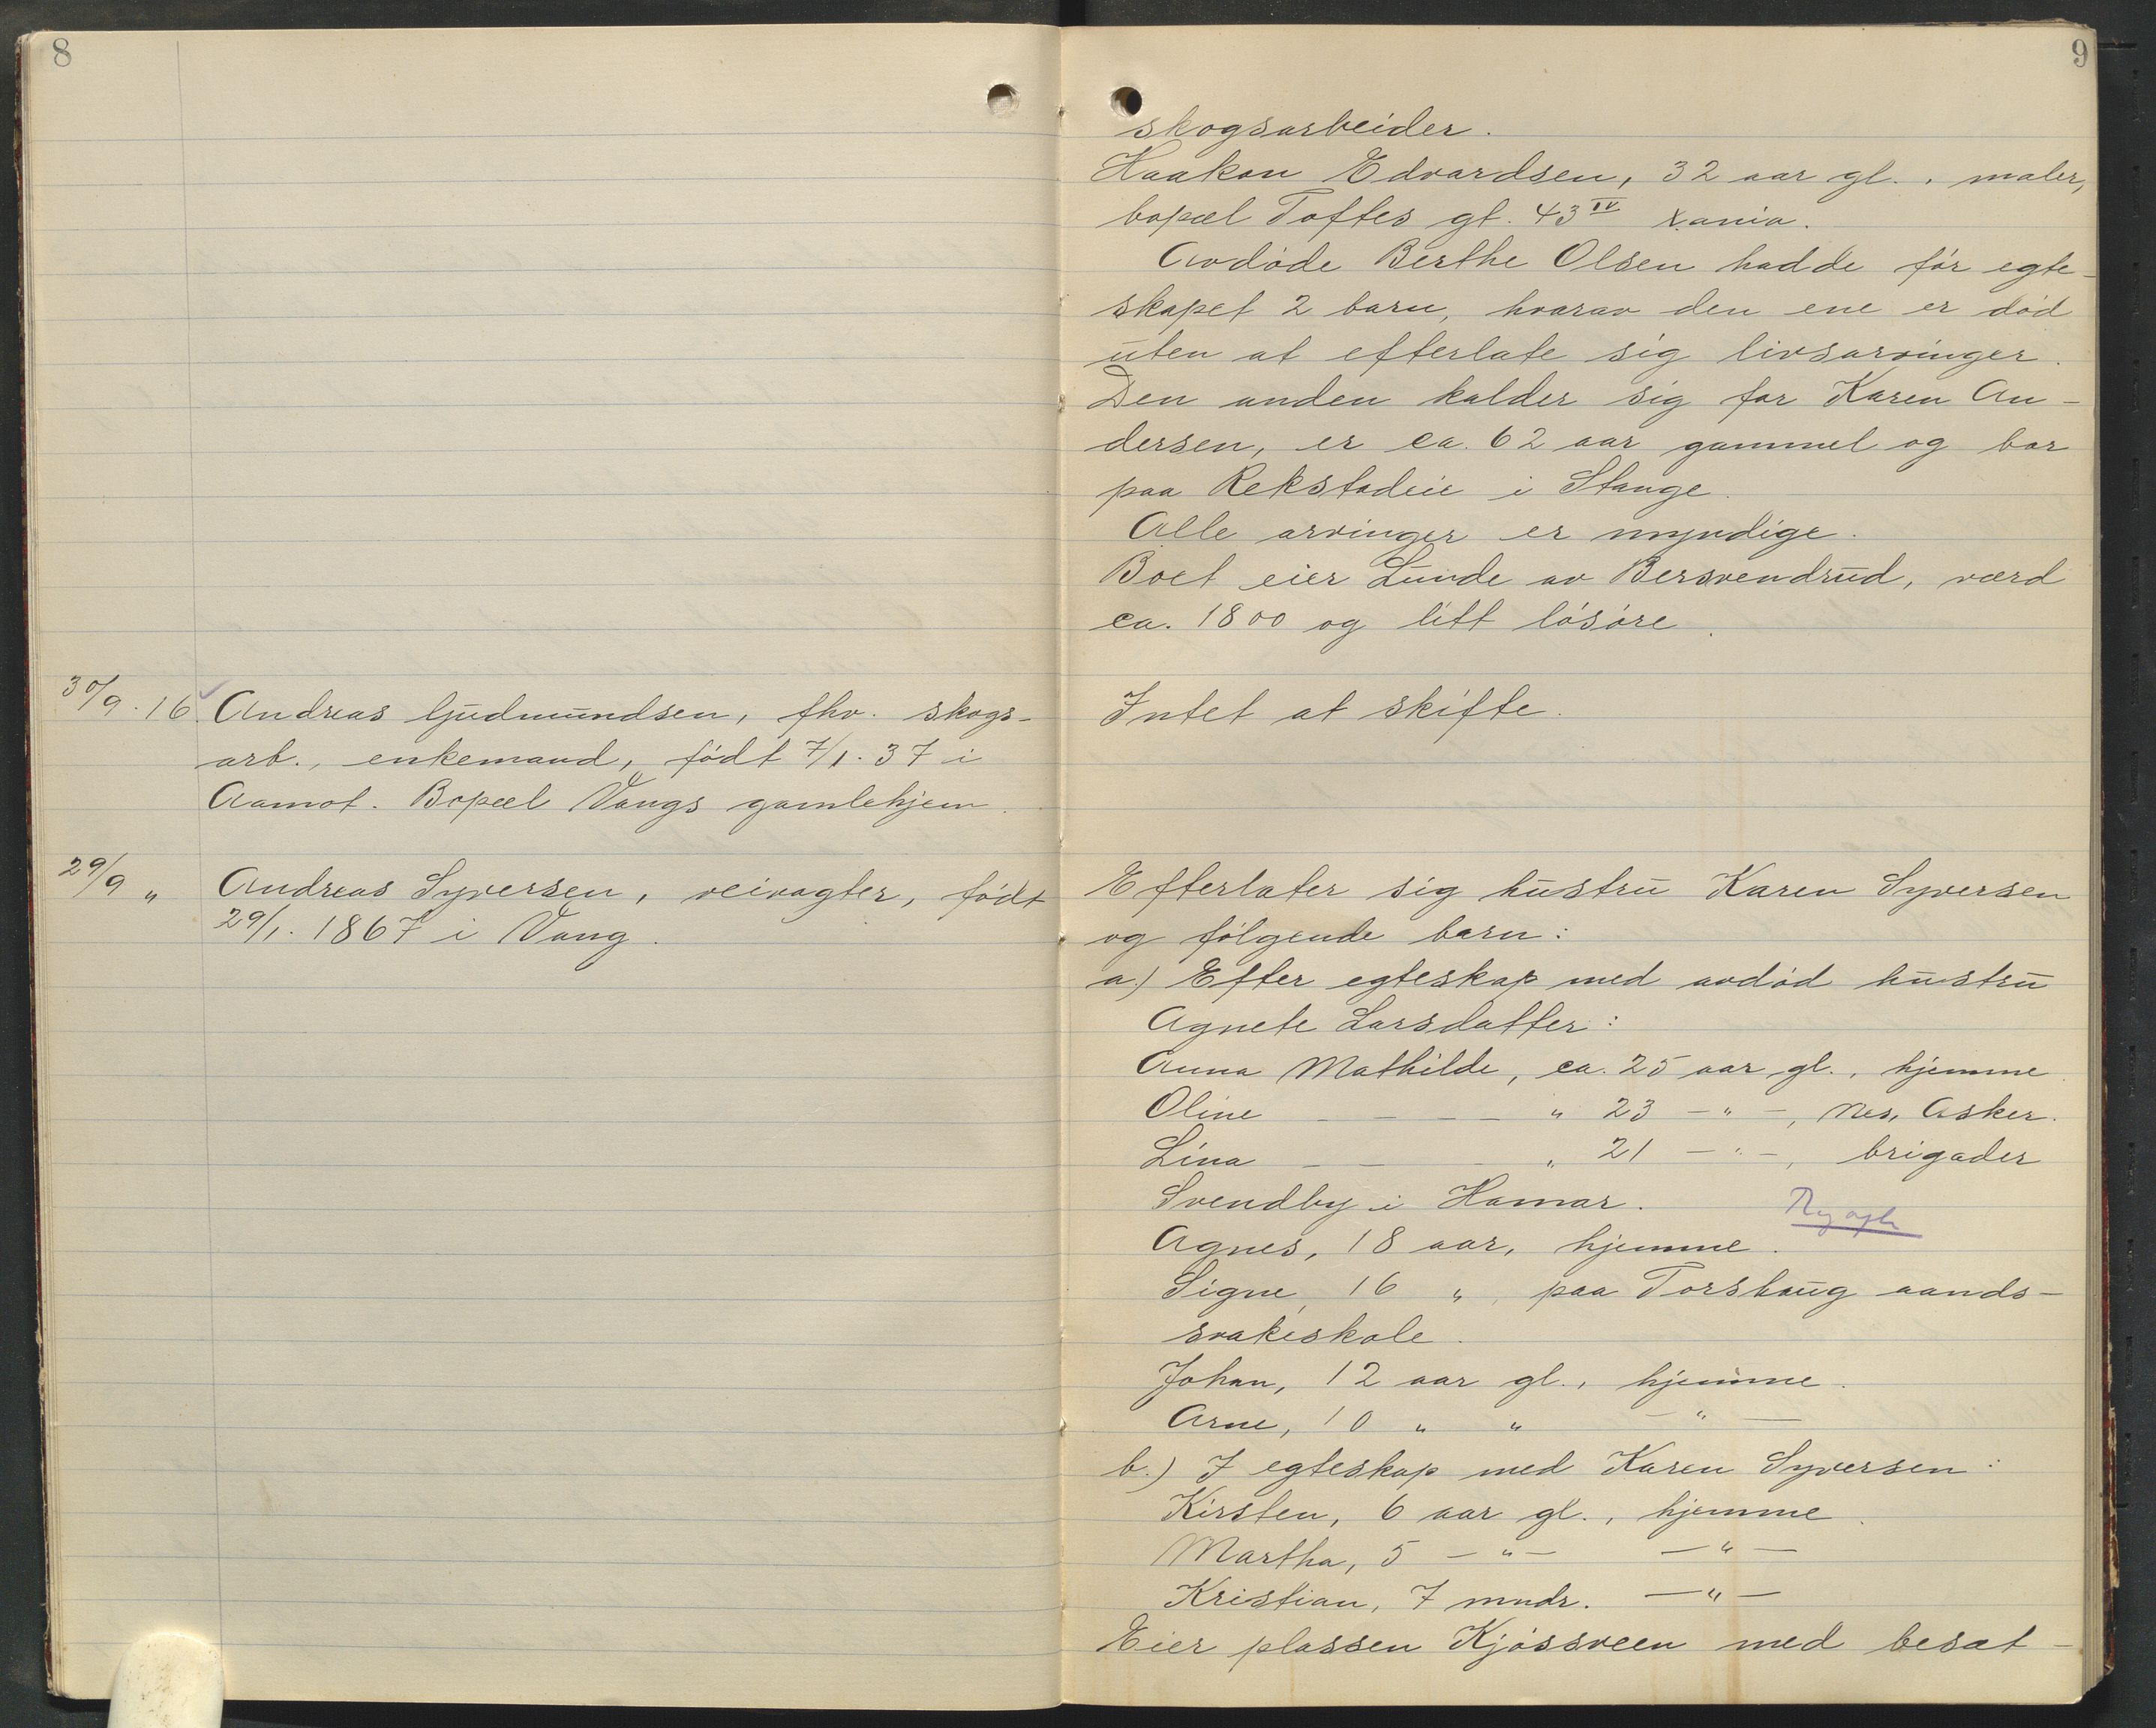 8
30/9. 16. Andreas Gudmundsen, fhv. skogs-
arb., enkemand, født 7/1. 37 i
Aamot. Bopæl Vangs gamlehjem.
29/9 " Andreas Syversen, veivagter, født
29/1. 1867 i Vang.
9
skogsarbeider.
Haakon Edvardsen, 32 aar gl., maler,
bopæl Toftes gt. 43 IV Xania.
Avdøde Berthe Olsen hadde før egte-
skapet 2 barn, hvorav den ene er død
uten at efterlate sig livsarvinger.
Den anden kalder sig for Karen An-
dersen, er ca. 62 aar gammel og bor
paa Rekstadeie i Stange.
Alle arvinger er myndige.
Boet eier Lunde av Bersvendrud, værd
ca. 1800 og litt løsøre.
Intet at skifte.
Efterlater sig hustru Karen Syversen
og følgende barn:
a.) Efter egteskap med avdød hustru
Agnete Larsdatter:
Anna Mathilde, ca. 25 aar gl., hjemme.
Oline - - - - " 23 - " -, Nes, Asker.
Lina - - - " 21 - " -, brigader
Svendby i Hamar.
Agnes, 18 aar, hjemme.
Signe, 16 ", paa Torshaug aands-
svakeskole.
Johan, 12 aar gl., hjemme.
Arne, 10 " " - " -
b.) I egteskap med Karen Syversen:
Kirsten, 6 aar gl., hjemme.
Martha, 5 - " - - " -
Kristian, 7 mndr. - " -
Eier plassen Kjøssveen med besæt-